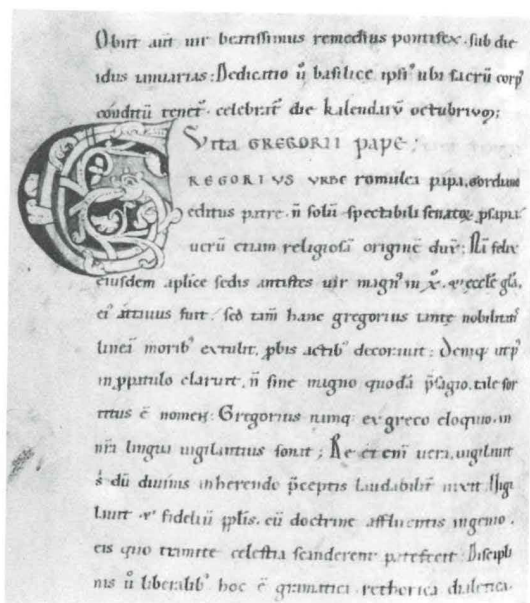 Obiit aut̄ uir beatissimus remedius pontifex. sub die
idus ianuarias; Dedicatio ū basilice ipsiꝰ ubi sacrū corpꝰ
conditū tenet᷑. celebrat᷑ die kalendarū octubriuō;
Vita GREGORII pape;
GREGORIVS VRBE romulea papa, gordiano
editus patre. n̄ solū spectabili senatoꝝ ꝓsapia
uerū etiam religiosā originē dux̄; Nā felix
eiusdem aplice sedis antistes uir magnꝰ in x̄. & ecclē glā,
eiꝰ attauus fuit. sed tam̄ hanc gregorius tante nobilitatis
lineā moribꝰ extulit, ꝓbis actibꝰ decorauit; Demq; ut pꝰ
in ꝓpatulo claruit, n̄ sine magno quodā p̄sagio, tale sor
titus ē nomen; Gregorius namq; ex greco eloquio. in
nrā lingua uigilantius sonat; Re et enī uera, uigilauit
s̄ dū diuinis inherendo p̄ceptis laudabilit᷑ uixit. Uigi
lauit & fideliū pplis. cū doctrine affluentis ingenio.
eis quo tramite celestia scanderent patefecit; Discipli
nis ū liberalibꝰ hoc ē grāmatica rethorica dialetica.